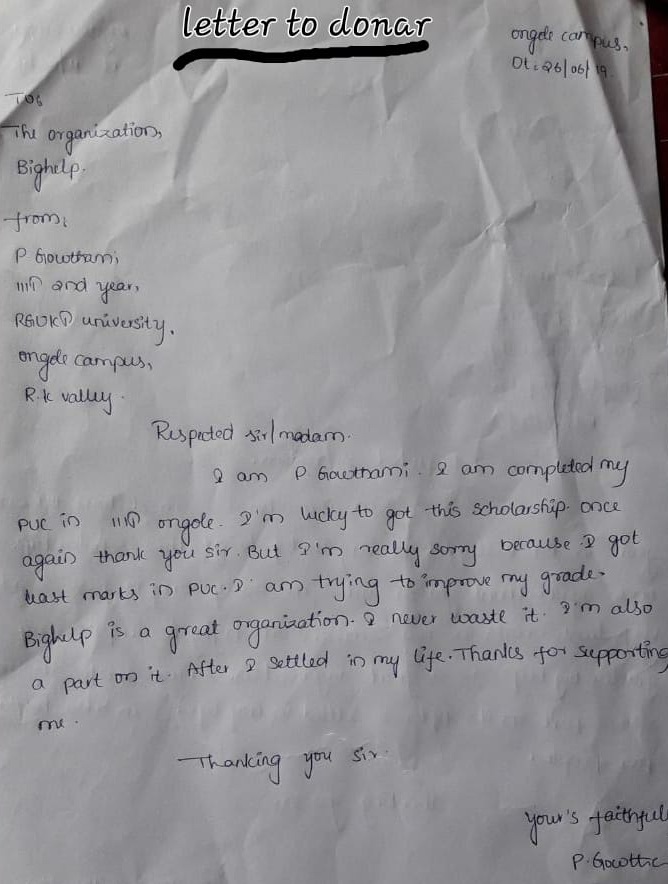 letter to donar
ongole campus,
Dt: 26/06/19.
To:
The organization,
Bighelp.
from:
P Gowthami,
IIIT 2nd year,
RGUKT university,
ongole campus,
R.k valley.
Respected sir/madam.
I am P Gowthami. I am completed my
PUC in IIIT ongole. I'm lucky to got this scholarship. once
again thank you sir. But I'm really sorry because I got
least marks in PUC. I am trying to improve my grade.
Bighelp is a great organization. I never waste it. I'm also
a part on it. After I settled in my life. Thanks for supporting
me.
Thanking you sir.
your's faithful
P. Gowtha